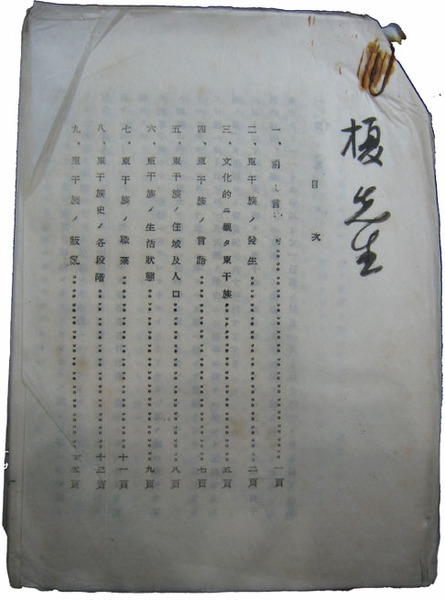 榎先生
目次
一、前言……一頁
二、東干族ノ發生……二頁
三、文化的ニ觀タ東干族……五頁
四、東干族ノ言語……七頁
五、東干族ノ住域及人口……八頁
六、東干族ノ生活狀態……九頁
七、東干族ノ職業……十一頁
八、東干族史ノ各段階……十三頁
九、東干族ノ叛亂……頁